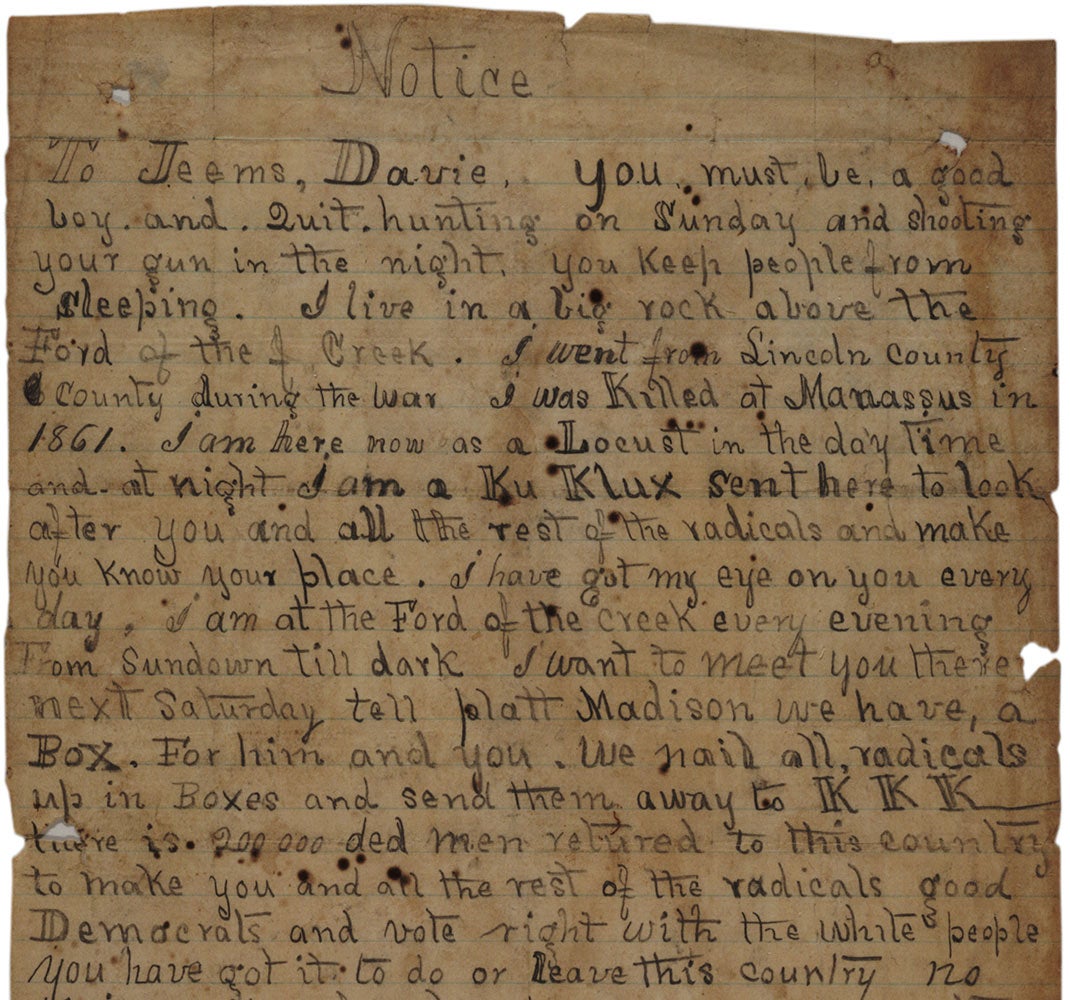 Notice
To Jeems, Davie. you. must. be. a good
boy. and. Quit. hunting on Sunday and shooting
your gun in the night. you keep people from
sleeping. I live in a big rock above the
Ford of the Creek. I went from Lincoln county
County during the war I was Killed at Manassus in
1861. I am here now as a Locust in the day Time
and. at night I am a Ku Klux sent here to look
after you and all the rest of the radicals and make
you know your place. I have got my eye on you every
day, I am at the Ford of the creek every evening
From Sundown till dark I want to meet you there
next Saturday tell platt Madison we have, a
Box. For him and you. We nail all, radicals
up in Boxes and send them away to KKK
there is. 200 000 ded men retured to this country
to make you and all the rest of the radicals good
Democrats and vote right with the white people
You have got it to do or leave this country no